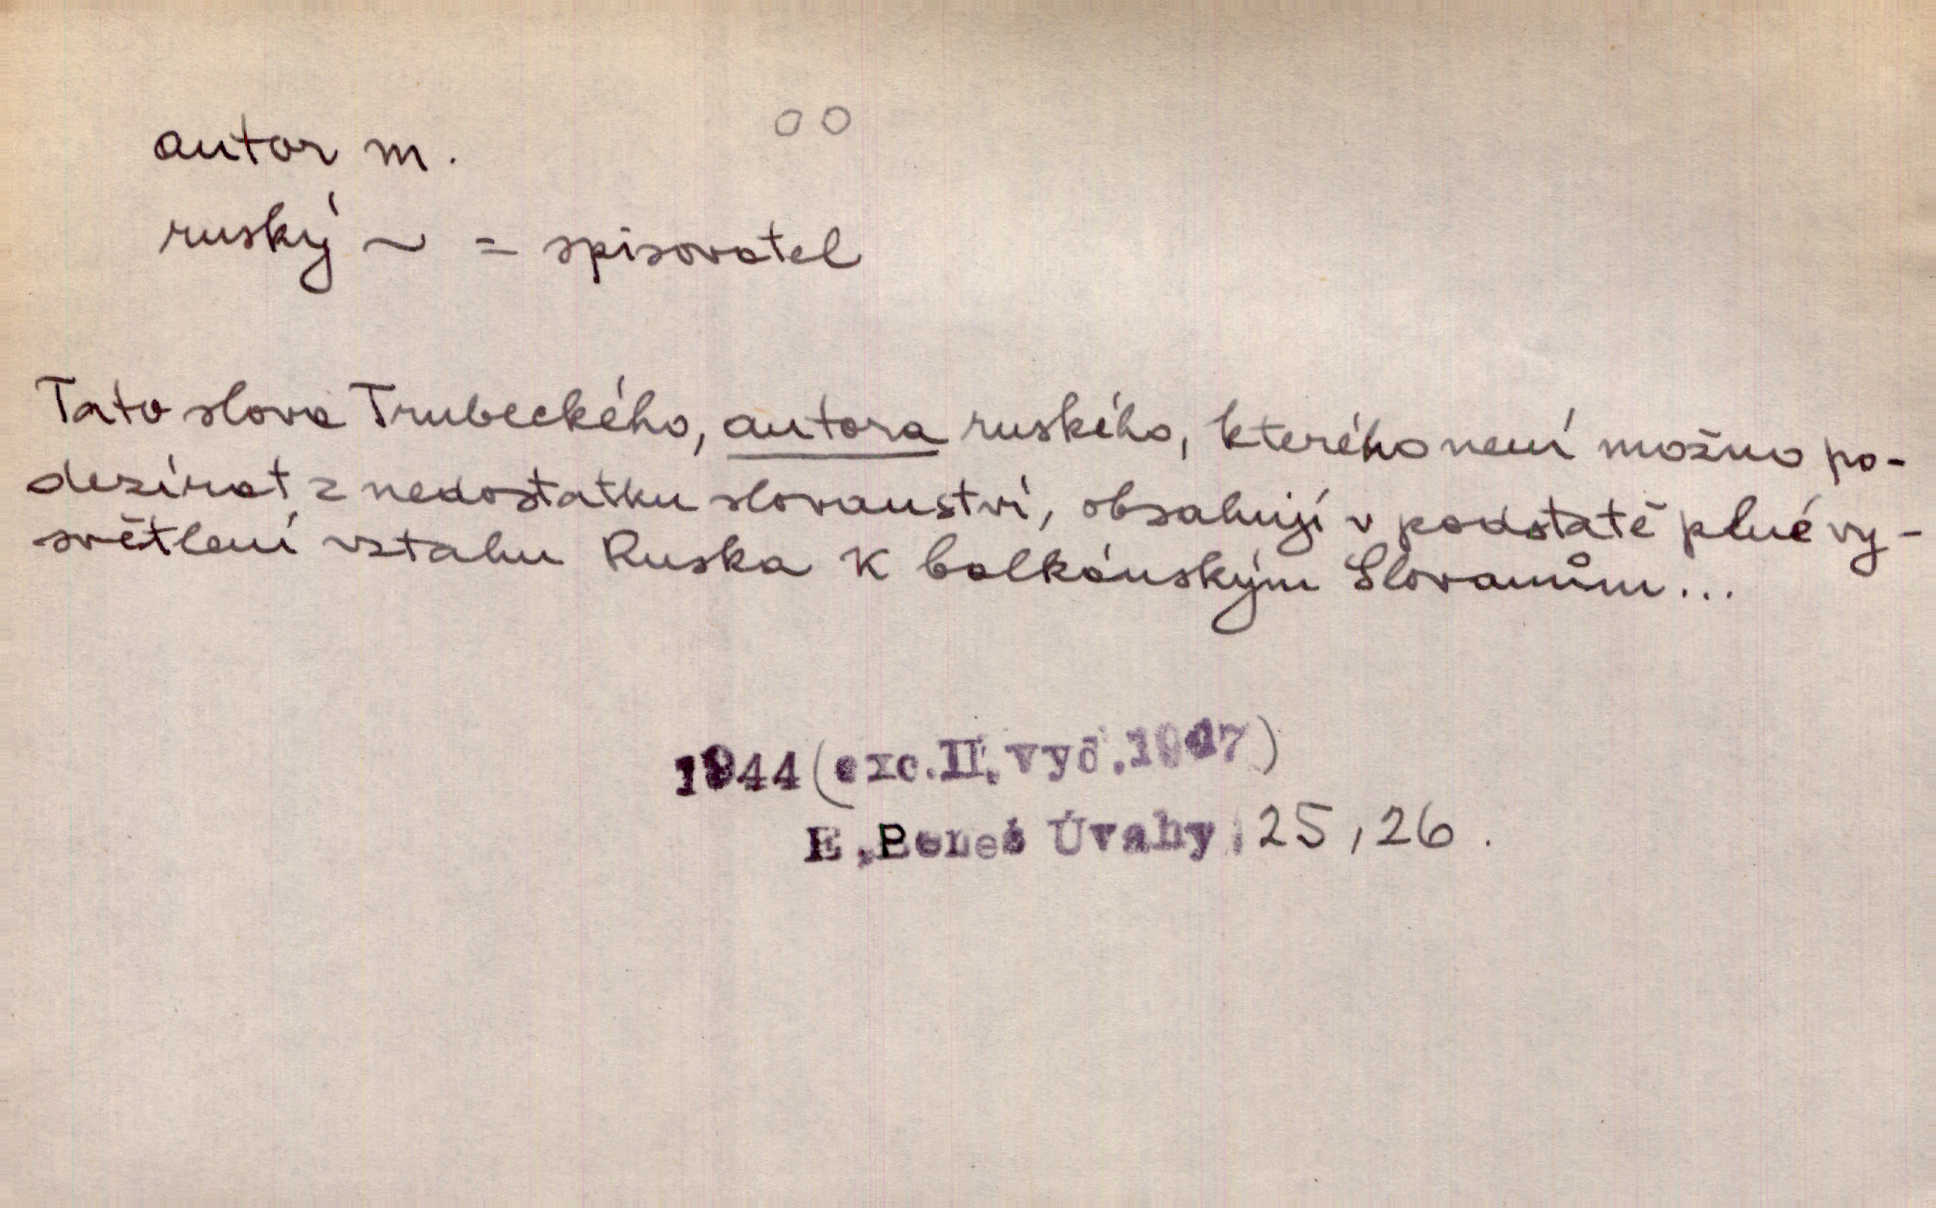 oo
autor m.
ruský ~ = spisovatel
Tato slova Trubeckého, autora ruského, kterého není možno po-
dezírat z nedostatku slovanství, obsahují v podstatě plné vy-
světlení vztahu Ruska k balkánským Slovanům...
1944 (exc. II. vyd. 1947)
E. Beneš Úvahy, 25, 26.